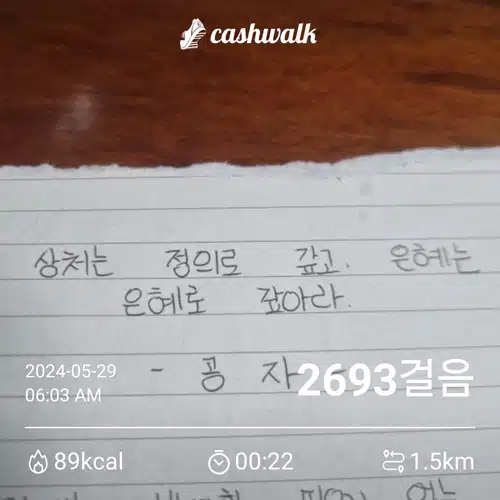 cashwalk
상처는 정의로 갚고. 은혜는
은혜로 갚아라.
- 공 자 -
2024-05-29
06:03 AM
2693걸음
89kcal
00:22
1.5km